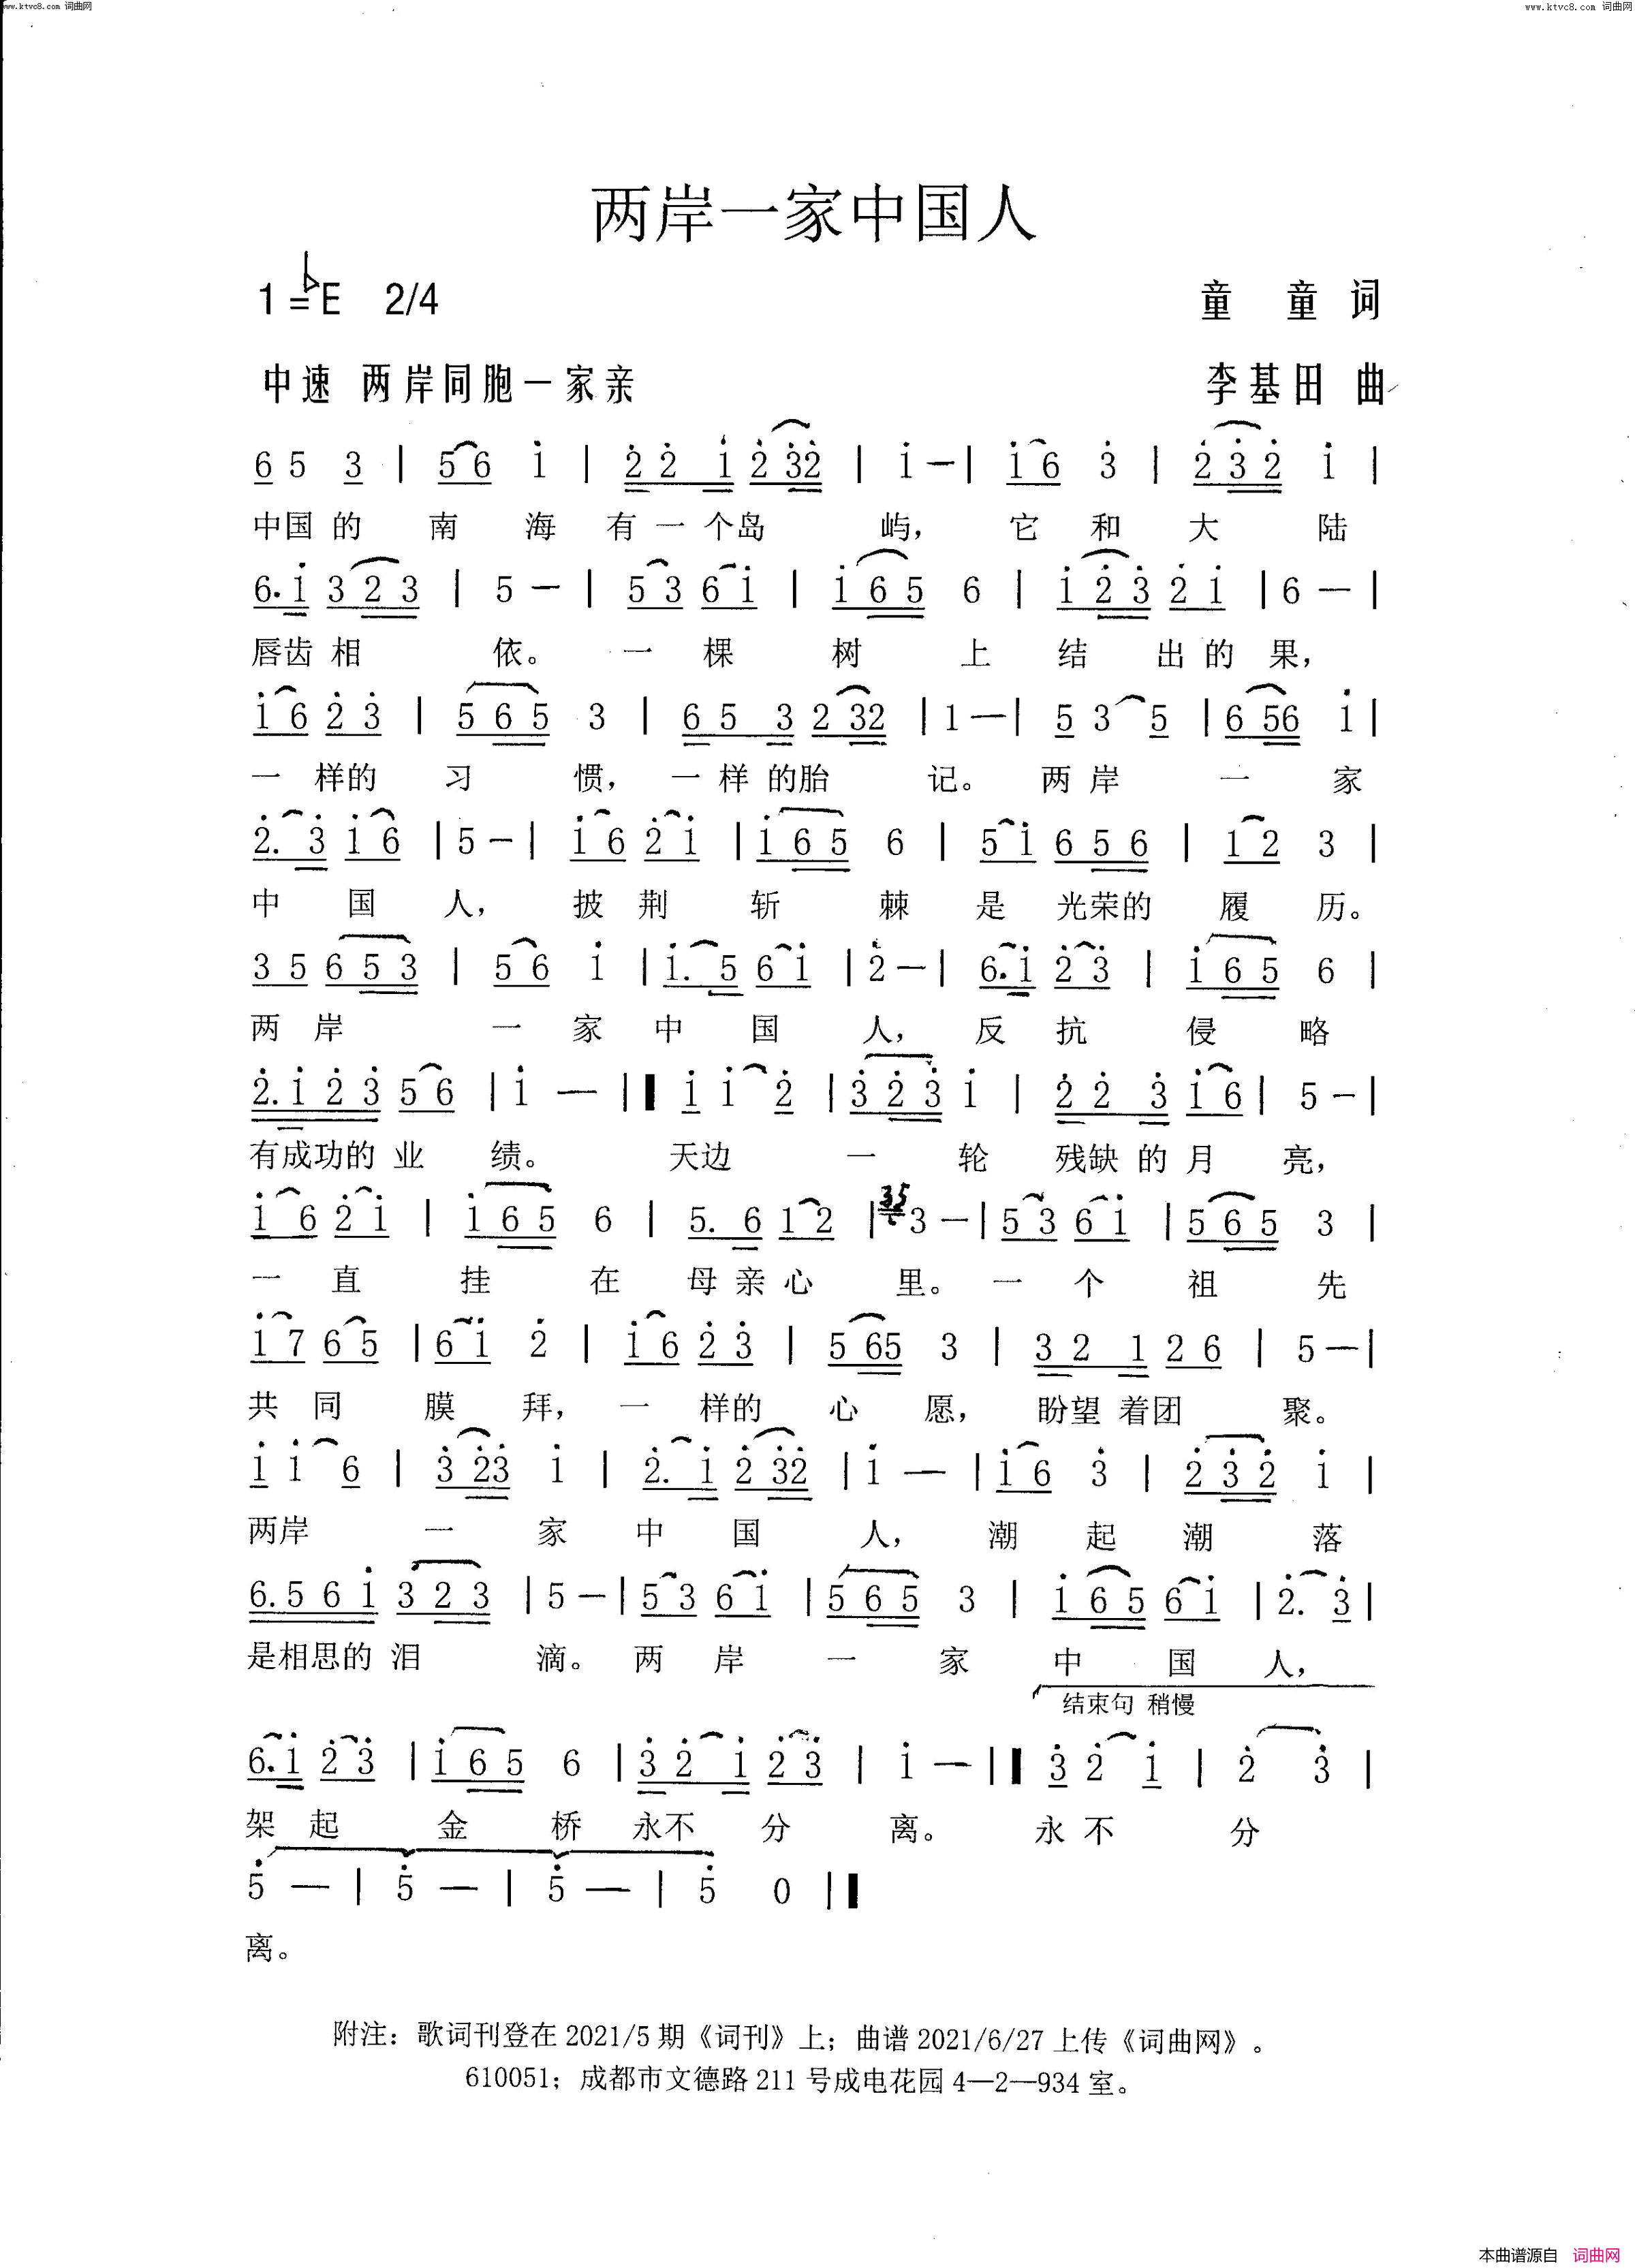 www.ktvc8.com 词曲网 www.ktvc8.com 词曲网
两岸一家中国人
1=♭E 2/4 童 童 词
中速 两岸同胞一家亲 李基田 曲
6 5 3 | 5 6 i | 2̇ 2̇ i 2̇ 3̇2̇ | i - | i 6 3̇ | 2̇ 3̇ 2̇ i |
中国 的 南 海 有 一 个岛 屿， 它 和 大 陆
6. i 3 2 3 | 5 - | 5 3 6 i | i 6 5 6 | i 2̇ 3̇ 2̇ i | 6 - |
唇齿 相 依。 一 棵 树 上 结 出 的 果，
i 6 2̇ 3̇ | 5 6 5 3 | 6 5 3 2 32 | 1 - | 5 3 5 | 6 56 i |
一 样的 习 惯， 一 样 的胎 记。 两 岸 一 家
2̇. 3̇ i 6 | 5 - | i 6 2̇ i | i 6 5 6 | 5 i 6 5 6 | 1 2 3 |
中 国 人， 披 荆 斩 棘 是 光荣的 履 历。
3 5 6 5 3 | 5 6 i | i. 5 6 i | 2̇ - | 6. i 2̇ 3̇ | i 6 5 6 |
两 岸 一 家 中 国 人， 反 抗 侵 略
2̇. i 2̇ 3̇ 5 6 | i - | i i 2̇ | 3̇ 2̇ 3̇ i | 2̇ 2̇ 3̇ i 6 | 5 - |
有成功的 业 绩。 天边 一 轮 残缺 的 月 亮，
i 6 2̇ i | i 6 5 6 | 5. 6 1 2 | 35 3 - | 5 3 6 i | 5 6 5 3 |
一 直 挂 在 母 亲 心 里。 一 个 祖 先
i 7 6 5 | 6 i 2̇ | i 6 2̇ 3̇ | 5 65 3 | 3 2 1 2 6 | 5 - |
共 同 膜 拜， 一 样的 心 愿， 盼望 着团 聚。
i i 6 | 3̇ 2̇3̇ i | 2̇. i 2̇ 3̇2̇ | i - | i 6 3̇ | 2̇ 3̇ 2̇ i |
两岸 一 家 中 国 人， 潮 起 潮 落
6. 5 6 i 3 2 3 | 5 - | 5 3 6 i | 5 6 5 3 | i 6 5 6 i | 2̇. 3̇ |
是相思的 泪 滴。 两 岸 一 家 中 国 人，
结束句 稍慢
6. i 2̇ 3̇ | i 6 5 6 | 3̇ 2̇ i 2̇ 3̇ | i - | 3̇ 2̇ i | 2̇ 3̇ |
架 起 金 桥 永不 分 离。 永 不 分
5̇ - | 5̇ - | 5̇ - | 5̇ 0 |
离。
附注：歌词刊登在 2021/5 期《词刊》上；曲谱 2021/6/27 上传《词曲网》。
610051；成都市文德路 211 号成电花园 4—2—934 室。
本曲谱源自 词曲网